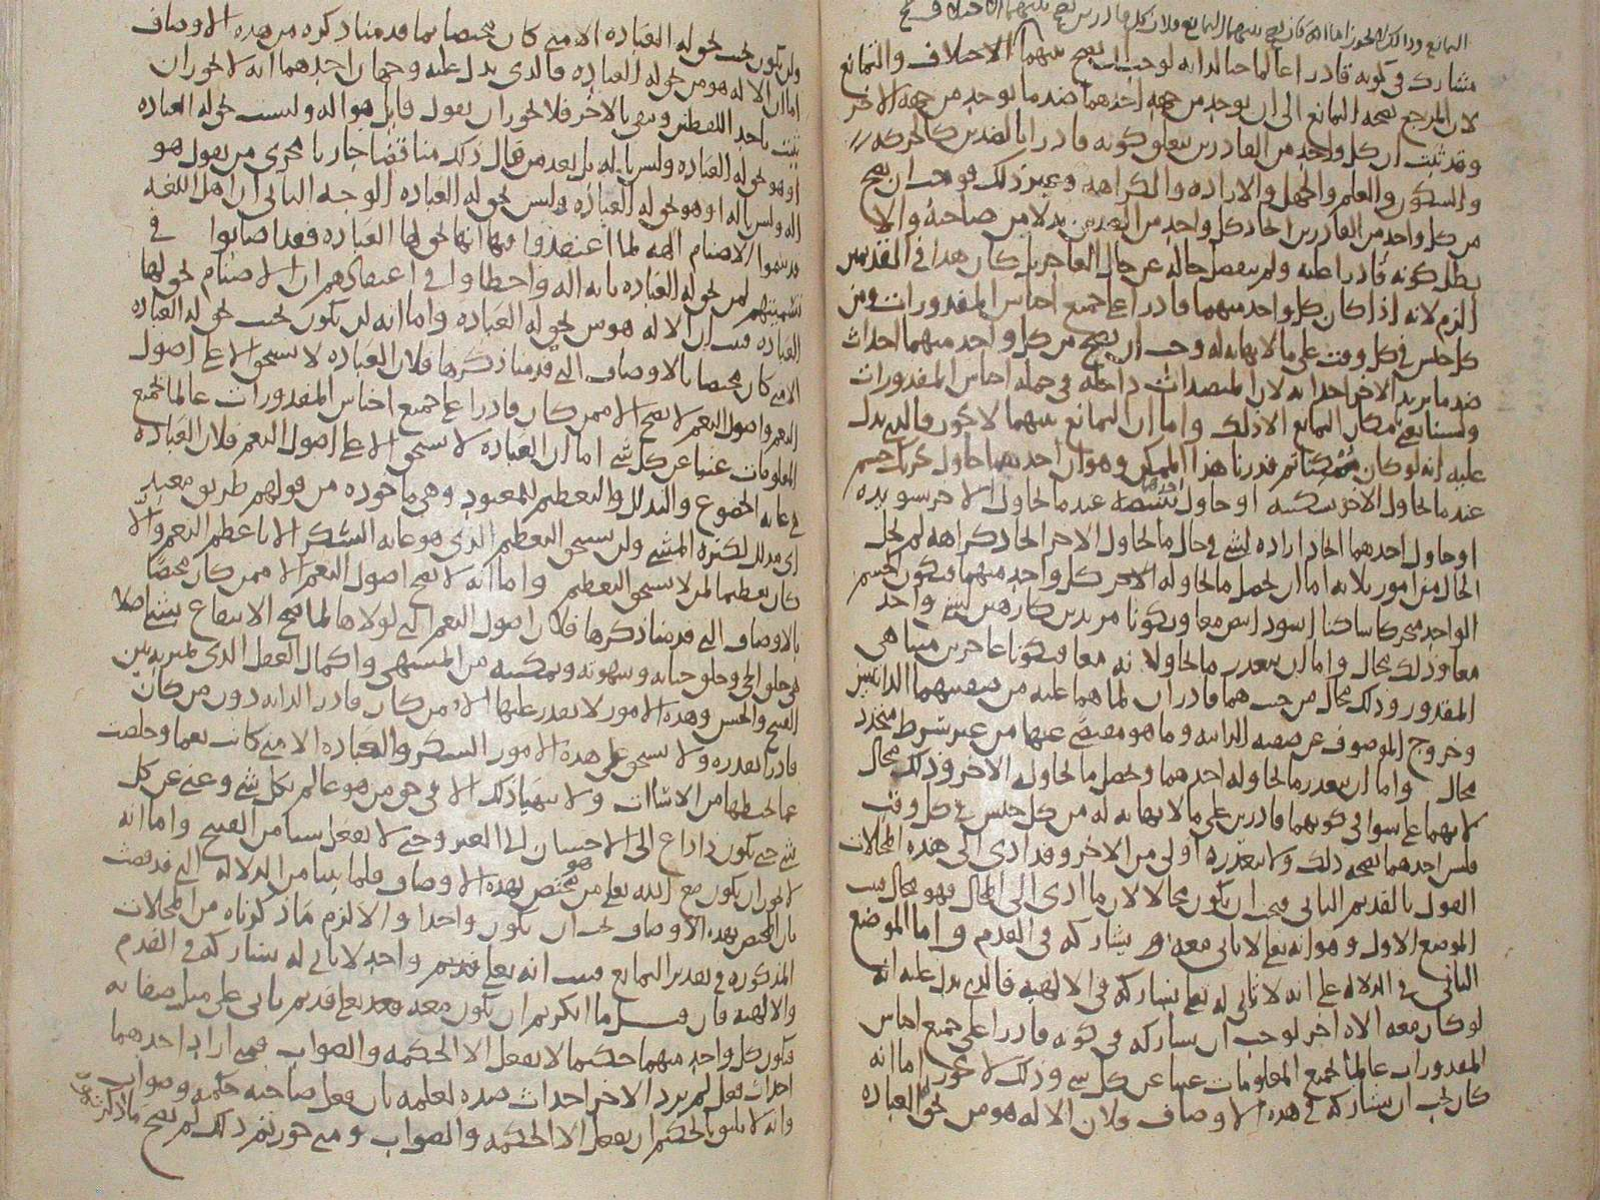 التمانع وذلك لا يجوز اما انه كان يصح بينهما التمانع فلان كل قادرين يصح بينهما
مشاركا في كونه قادرا عالما حيا لذاته لوجب ان يصح بينهما الاختلاف والتمانع
لان المرجع بصحة التمانع الى ان يوجد من جهة احدهما ضد ما يوجد من جهة الاخر
وقد ثبت ان كل واحد من القادرين يتعلق كونه قادرا بالضدين كالحركة
والسكون والعلم والجهل والارادة والكراهة وغير ذلك فوجب ان يصح
من كل واحد من القادرين ايجاد كل واحد من الضدين بدلا من صاحبه والا
بطل كونه قادرا عليه ولم ينفصل حاله عن حال العاجز بل كان هذا في القديمين
الزم لانه اذا كان كل واحد منهما قادرا على جميع اجناس المقدورات ومن
كل جنس في كل وقت على ما لا نهاية له وجب ان يصح من كل واحد منهما احداث
ضد ما يريد الاخر احداثه لان المتضادات داخلة في جملة اجناس المقدورات
ولسنا نعني بامكان التمانع الا ذلك واما ان التمانع بينهما لا يجوز فالذي يدل
عليه انه لو كان ممكنا ثم قدرنا هذا الممكن وهو ان احدهما حاول تحريك جسم
عندما يحاول الاخر تسكينه او حاول احدهما تبييضه عندما يحاول الاخر تسويده
او حاول احدهما ايجاد ارادة لشيء في حال ما يحاول الاخر ايجاد كراهة لم يخل
الحال من امور ثلاثة اما ان يحصل ما يحاوله كل واحد منهما فيكون الجسم
الواحد متحركا ساكنا اسود ابيض معا ويكونا مريدين كارهين لشيء واحد
معا وذلك محال واما ان يتعذر ما حاولا نه معا فيكونا عاجزين متناهي
المقدور وذلك محال من حيث هما قادران لما هما عليه من صفتيهما الذاتيتين
وخروج الموصوف عن صفته الذاتية وما هو مقتضى عنها من غير شرط متجدد
محال واما ان يتعذر ما يحاوله احدهما ويحصل ما يحاوله الاخر وذلك محال
لانهما على سواء في كونهما قادرين على ما لا نهاية له من كل جنس في كل وقت
فليس احدهما بصحة ذلك ولا بتعذره اولى من الاخر وقد ادى الى هذه المحالات
القول بالقديم الثاني فيجب ان يكون محالا لان ما ادى الى المحال فهو محال فثبت
الموضع الاول وهو انه تعالى لا ثاني معه يشاركه في القدم واما الموضع
الثاني في الدلالة على انه لا ثاني له تعالى يشاركه في الالهية فالذي يدل عليه انه
لو كان معه اله اخر لوجب ان يشاركه في كونه قادرا على جميع اجناس
المقدورات عالما بجميع المعلومات غنيا عن كل شيء وذلك لا يجوز اما انه
كان يجب ان يشاركه في هذه الاوصاف فلان الاله هو من تحق له العبادة
ولن يكون يجب تحق له العبادة الا متى كان مختصا بما قدمنا ذكره من هذه الاوصاف
اما ان الاله هو من تحق له العبادة فالذي يدل عليه وجهان احدهما انه لا يجوز ان
يثبت باحد اللفظين وينفى بالاخر فلا يجوز ان يقول قائل هو اله وليست تحق له العبادة
او هو تحق له العبادة وليس باله بل يعد من قال ذلك مناقضا جاريا مجرى من يقول هو
اله وليس باله او هو تحق له العبادة وليس تحق له العبادة الوجه الثاني ان اهل اللغة
قد سموا الاصنام الهة لما اعتقدوا فيها انها تحق لها العبادة فقد اصابوا في
تسميتهم لمن تحق له العبادة بانه اله واخطاوا في اعتقادهم ان الاصنام تحق لها
العبادة فثبت ان الاله هو من تحق له العبادة واما انه لن يكون يجب تحق له العبادة
الا متى كان مختصا بالاوصاف التي قدمنا ذكرها فلان العبادة لا تستحق الا على اصول
النعم واصول النعم لا تصح الا ممن كان قادرا على جميع اجناس المقدورات عالما بجميع
المعلومات غنيا عن كل شيء اما ان العبادة لا تستحق الا على اصول النعم فلان العبادة
في غاية الخضوع والتذلل والتعظيم للمعبود وهي ماخوذة من قولهم طريق معبد
اي مذلل لكثرة المشي ولن يستحق التعظيم الذي هو غاية الشكر الا باعظم النعم والا
كان تعظيما لمن لا يستحق التعظيم واما انه لا تصح اصول النعم الا ممن كان مختصا
بالاوصاف التي قدمنا ذكرها فلان اصول النعم التي لولاها لما صح الانتفاع بشيء اصلا
هي خلق الحي وخلق حياته وشهوته وتمكينه من المشتهى واكمال العقل الذي يميز به بين
القبيح والحسن وهذه الامور لا يقدر عليها الا من كان قادرا لذاته دون من كان
قادرا بقدرة ولا يستحق على هذه الامور الشكر والعبادة الا متى كانت نعما وخلصت
عما يحبطها من الاساات ولا يتهيا ذلك الا في حق من هو عالم بكل شيء وغني عن كل
شيء حتى يكون ذا داع الى الاحسان الى الغير وحتى لا يفعل شيئا من القبيح واما انه
لا يجوز ان يكون مع الله تعالى من هو مختص بهذه الاوصاف فلما بينا من الدلالة التي قد قضت
بان المختص بهذه الاوصاف يجب ان يكون واحدا والا لزم ما ذكرناه من المحالات
المذكورة في تقدير التمانع فثبت انه تعالى قديم واحد لا ثاني له يشاركه في القدم
والالهية فان قيل ما انكرتم ان يكون معه تعالى قديم ثاني على مثل صفاته
فيكون كل واحد منهما حكيما لا يفعل الا الحكمة والصواب فمتى اراد احدهما
احداث فعل لم يرد الاخر احداث ضده لعلمه بان فعل صاحبه حكمة وصواب
وانه لا يليق بالحكيم ان يفعل الا الحكمة والصواب ومتى جوزتم ذلك لم يصح ما ذكرتموه